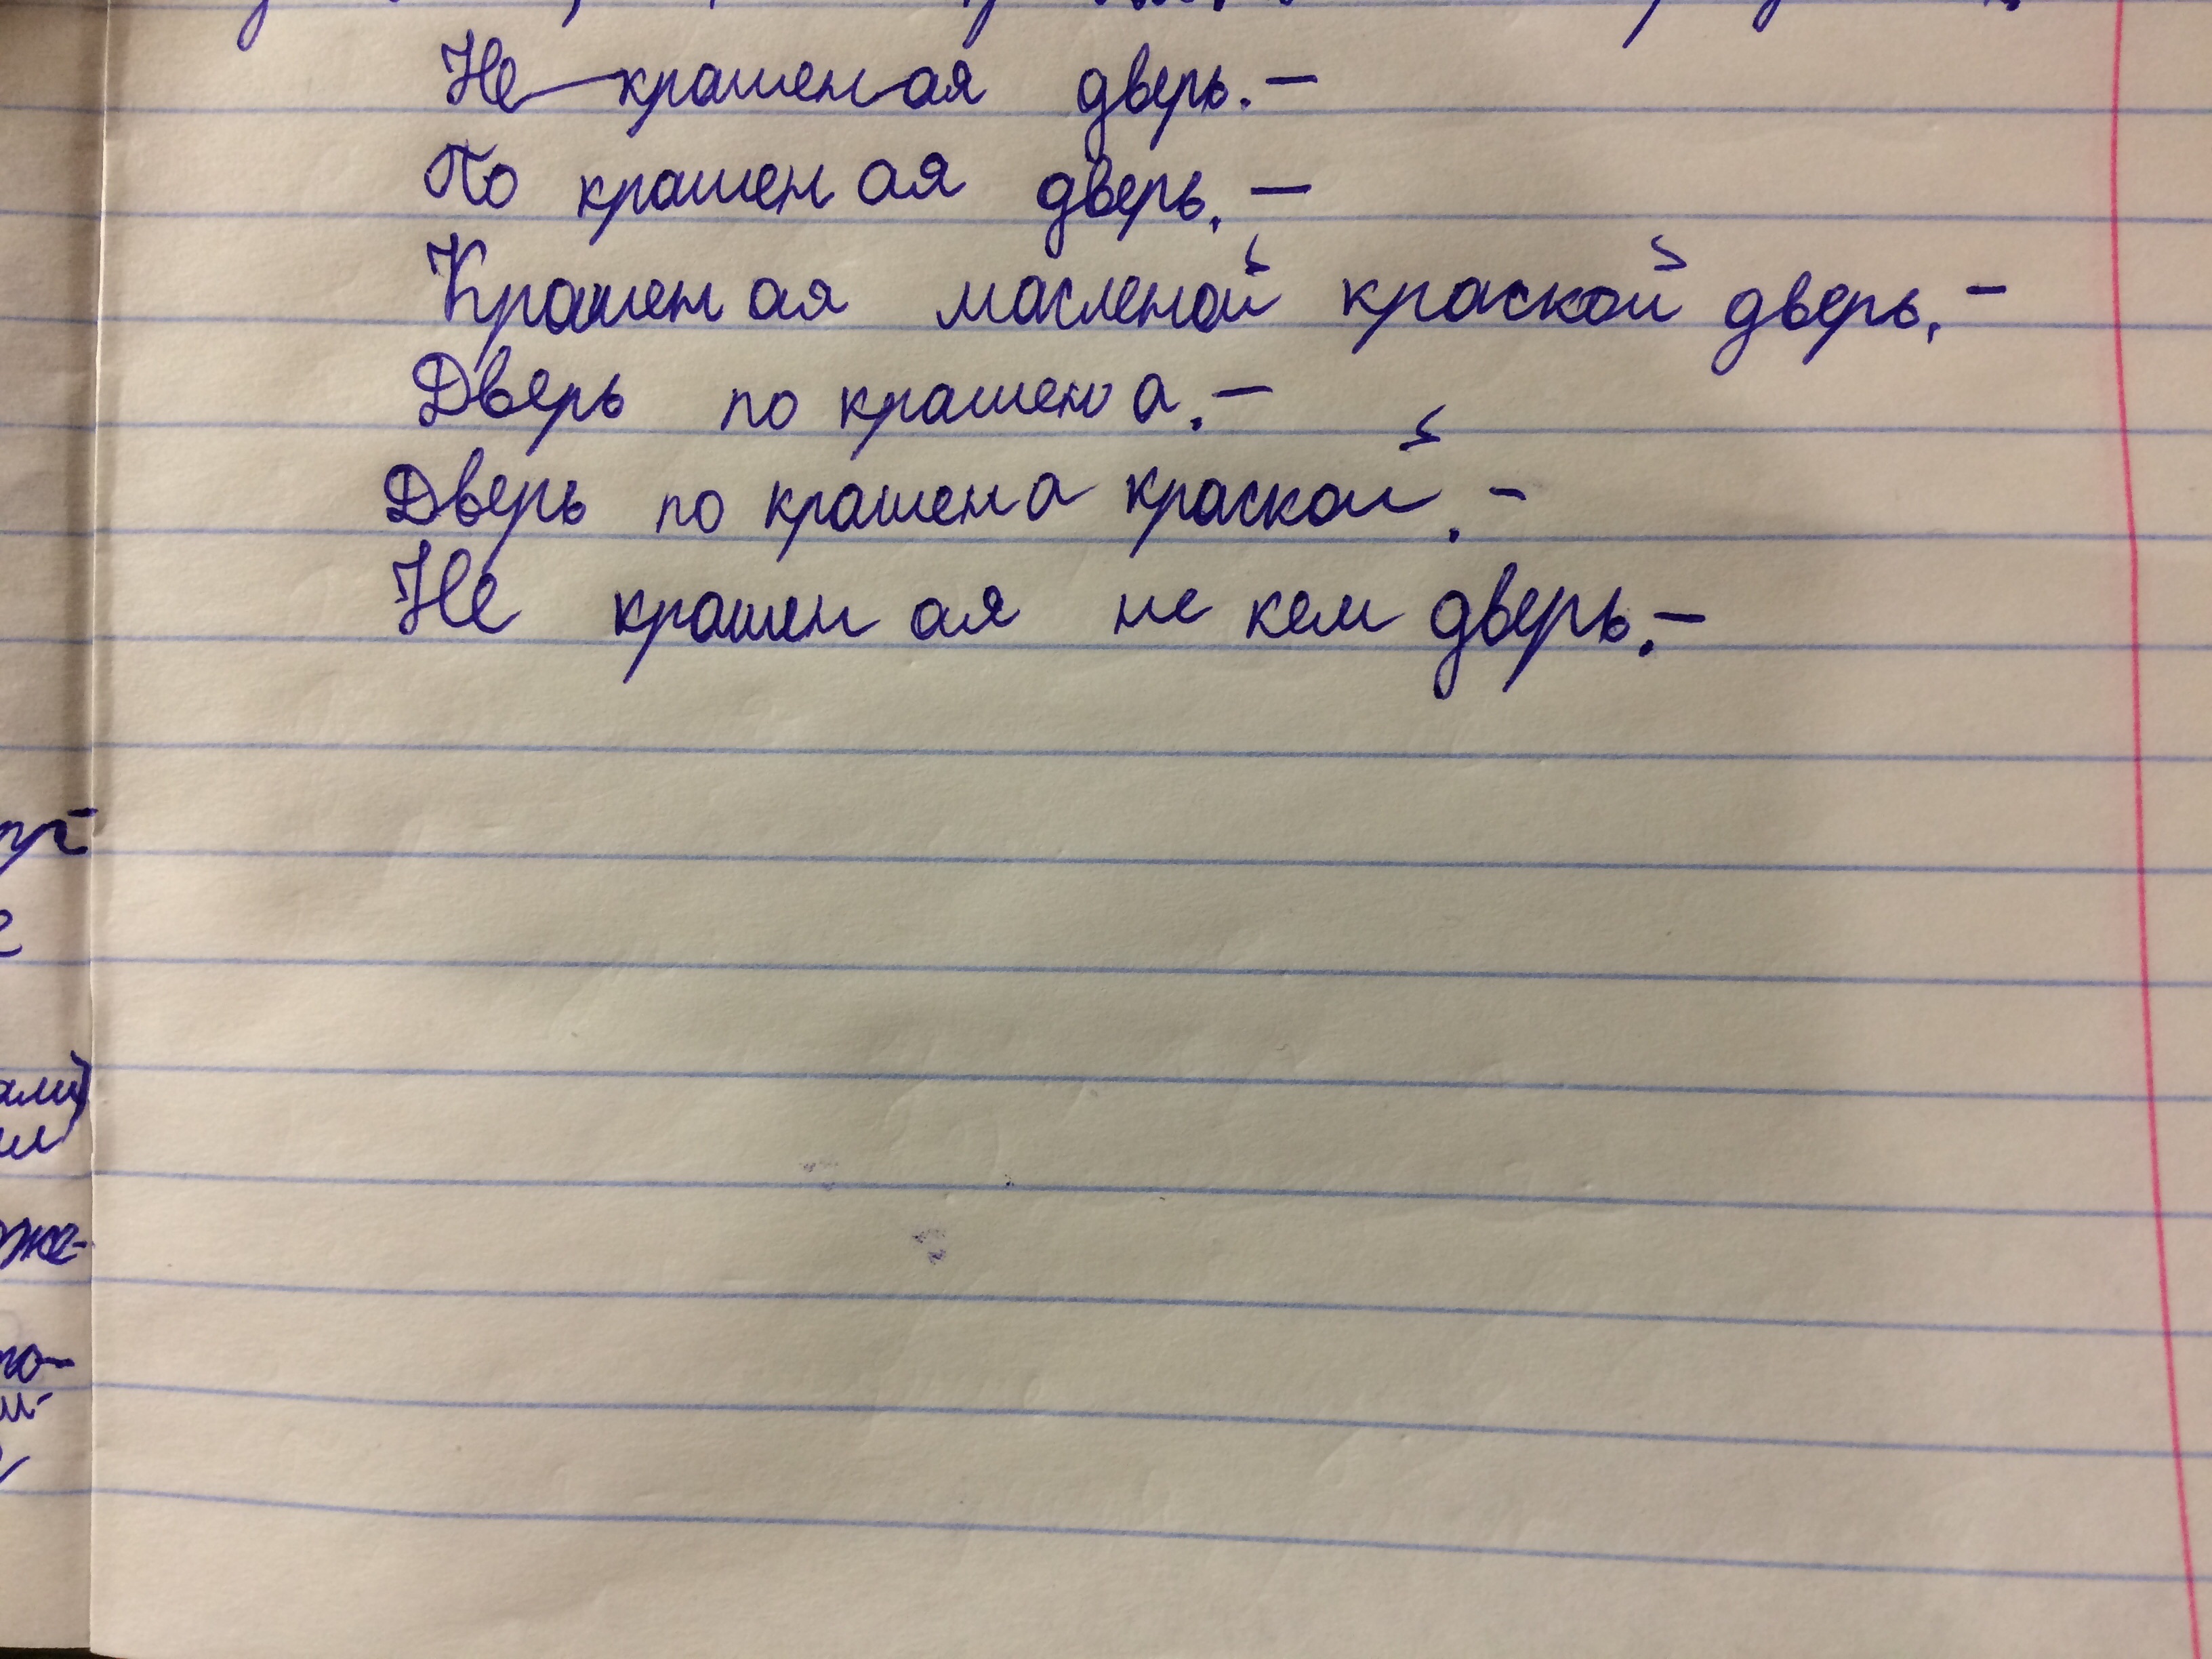 Не крашеная дверь. –
По крашен ая дверь. –
Крашен ая масленой краской дверь. –
Дверь по крашен а. –
Дверь по крашен а краской. –
Не крашен ая не кем дверь. –